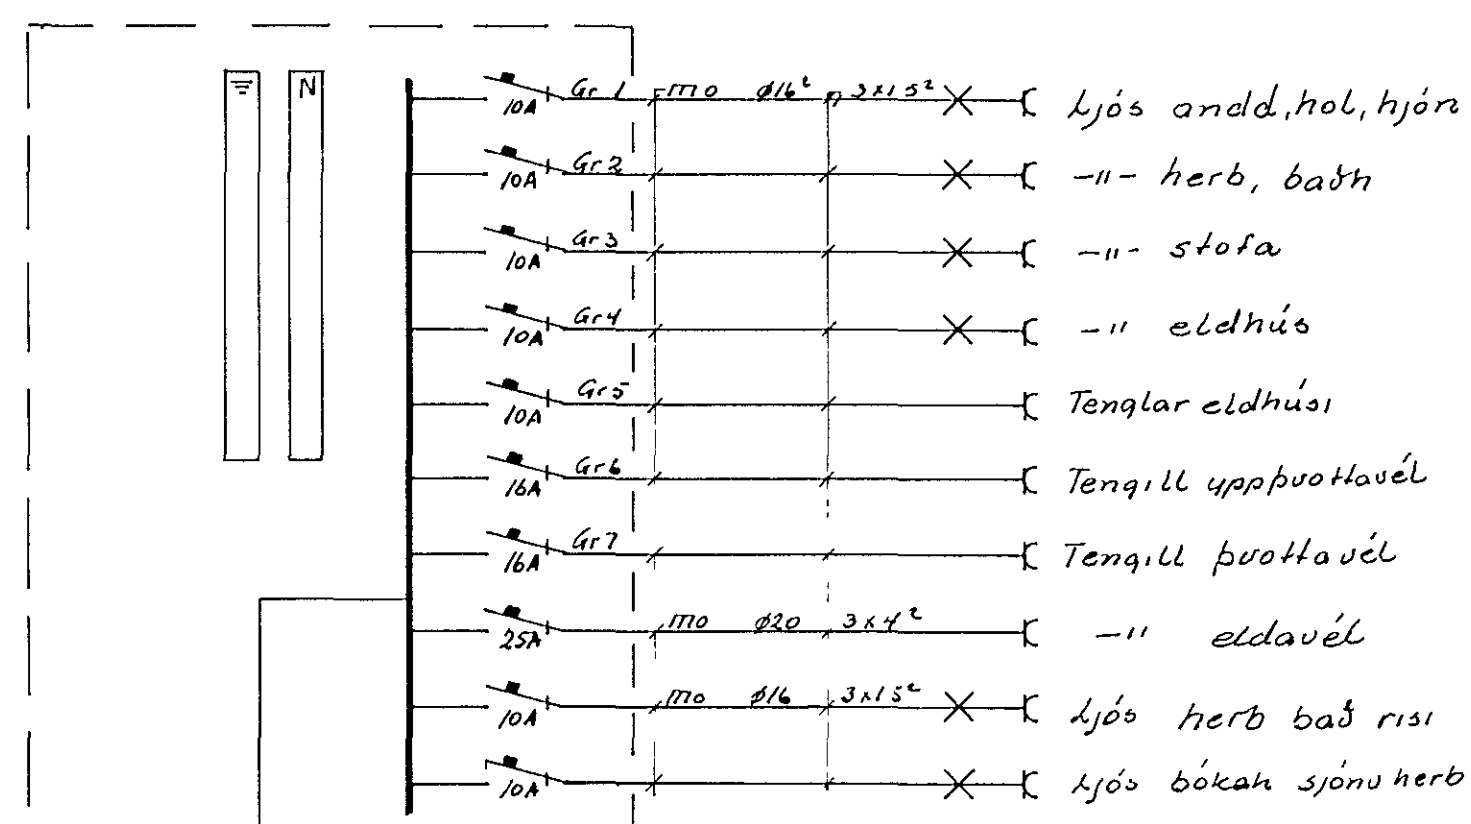 N
Gr 1 mo ø16² 3x1 5² Ljós andd, hol, hjón
10A
Gr 2 -"- herb, baðh
10A
Gr 3 -"- stofa
10A
Gr 4 -" eldhús
10A
Gr 5 Tenglar eldhúsi
10A
Gr 6 Tengill uppþvottavél
16A
Gr 7 Tengill þvottavél
16A
mo ø20 3x4² -" eldavél
25A
mo ø16 3x1 5² Ljós herb bað risi
10A
Ljós bókah sjónv herb
10A